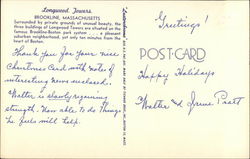 Longwood Towers
BROOKLINE, MASSACHUSETTS
Surrounded by private grounds of unusual beauty, the
three buildings of Longwood Towers are situated on the
famous Brookline-Boston park system . . . a pleasant
suburban neighborhood, yet only ten minutes from the
heart of Boston.
Thank you for your nice
Christmas Card with notes of
interesting news enclosed.
Walter is slowly regaining
strength. Now able to do things
he feels will help.
Greetings!
POST-CARD
Happy Holidays
Walter & Irene Pratt